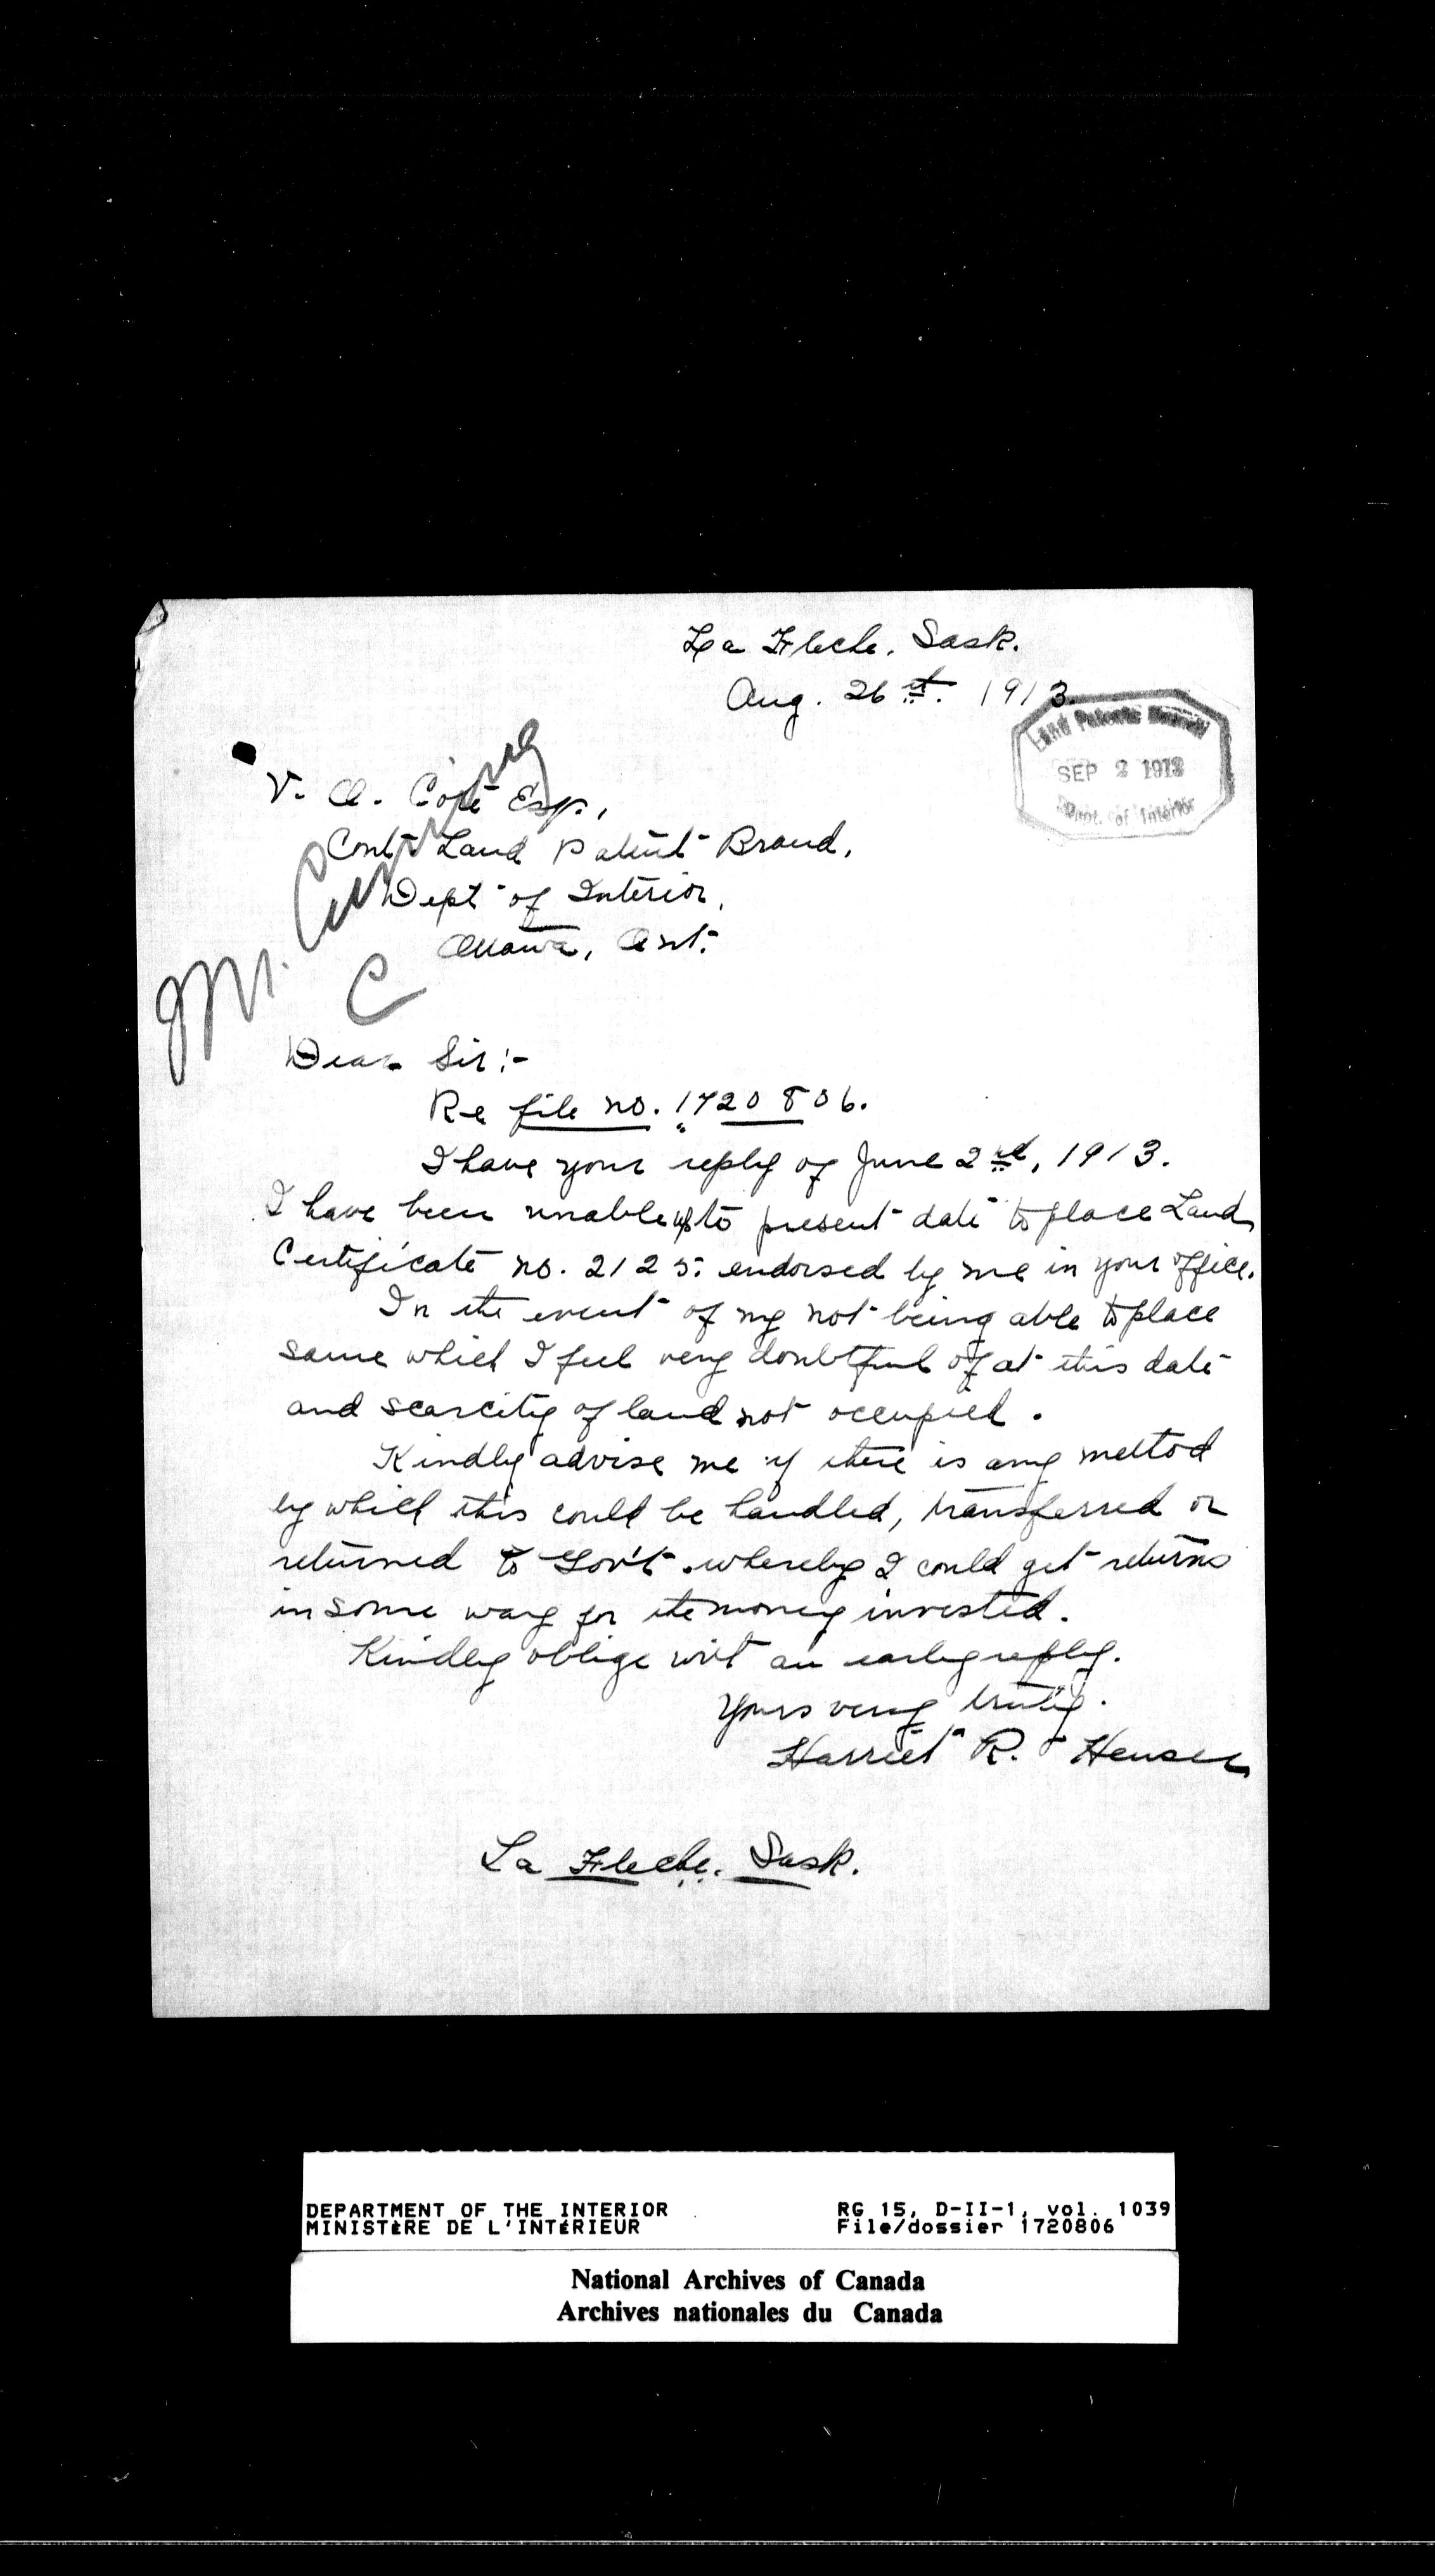 La Fleche, Sask.
Aug. 26th. 1913.
Land Patents Branch
SEP 2 1913
Dept. of Interior
V. A. Coté Esq.,
Contr Land Patent Brand,
Dept of Interior,
Ottawa, Ont.
C
Dear Sir:-
Re file no. 1720806.
I have your reply of June 2nd, 1913.
I have been unable up to present date to place Land
Certificate no. 2125. endorsed by me in your office.
In the event of my not being able to place
same which I feel very doubtful of at this date
and scarcity of land not occupied.
Kindly advise me if there is any method
by which this could be handled, transferred or
returned to Gov't. whereby I could get returns
in some way for the money invested.
Kindly oblige with an early reply.
Yours very truly.
Harriet R. Hensen
La Fleche. Sask.
DEPARTMENT OF THE INTERIOR
MINISTÈRE DE L'INTÉRIEUR
RG 15, D-II-1, vol. 1039
File/dossier 1720806
National Archives of Canada
Archives nationales du Canada